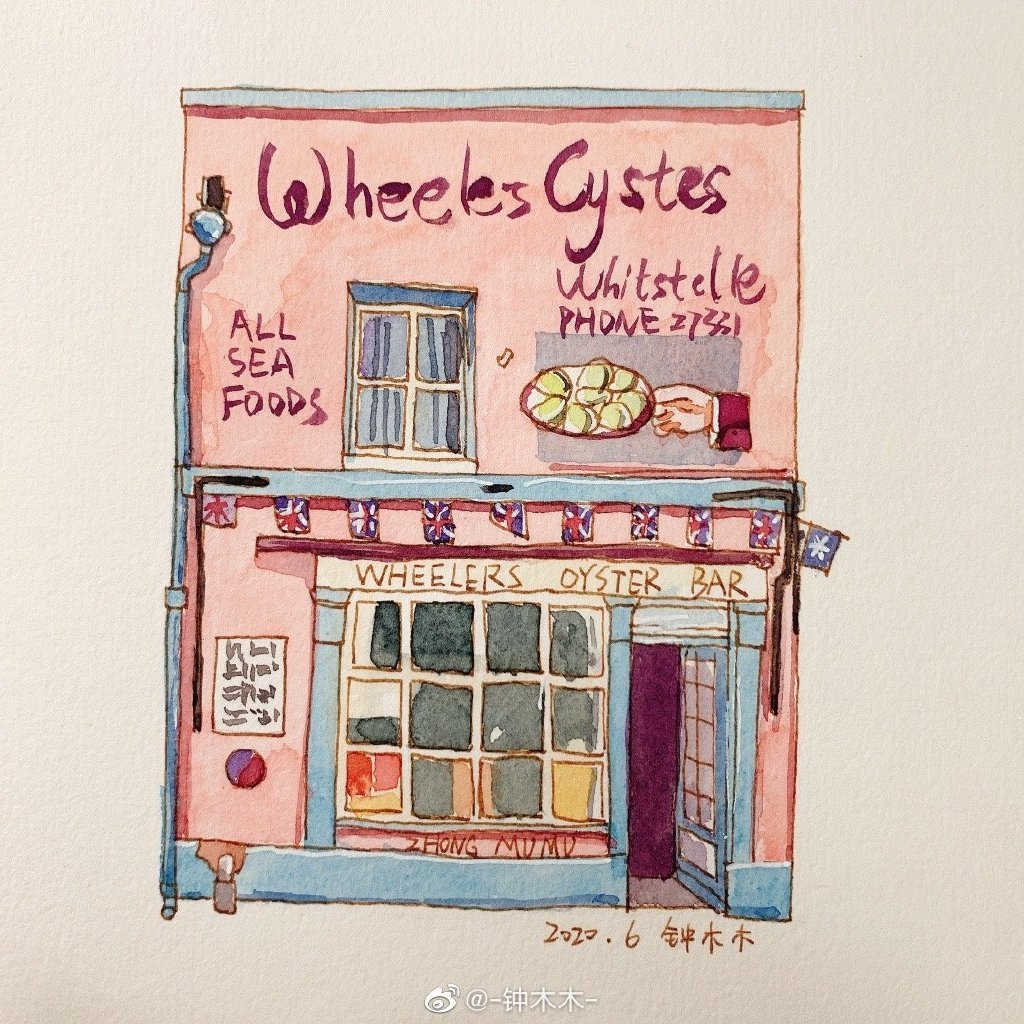 Wheelers Oystes
Whitstelle
PHONE 27331
ALL
SEA
FOODS
WHEELERS OYSTER BAR
ZHONG MUMU
2020.6 钟木木
@-钟木木-